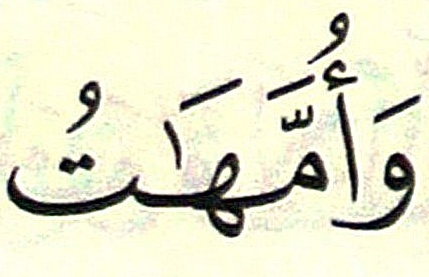 وَأُمَّهَٰتُ